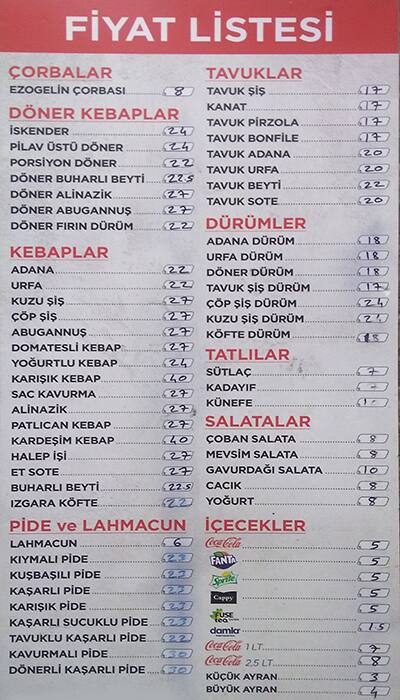 FİYAT LİSTESİ
ÇORBALAR
EZOGELİN ÇORBASI 8
DÖNER KEBAPLAR
İSKENDER 24
PİLAV ÜSTÜ DÖNER 24
PORSİYON DÖNER 22
DÖNER BUHARLI BEYTİ 22.5
DÖNER ALİNAZİK 27
DÖNER ABUGANNUŞ 27
DÖNER FIRIN DÜRÜM 22
KEBAPLAR
ADANA 22
URFA 22
KUZU ŞİŞ 27
ÇÖP ŞİŞ 27
ABUGANNUŞ 27
DOMATESLİ KEBAP 27
YOĞURTLU KEBAP 24
KARIŞIK KEBAP 40
SAC KAVURMA 27
ALİNAZİK 27
PATLICAN KEBAP 27
KARDEŞİM KEBAP 40
HALEP İŞİ 27
ET SOTE 27
BUHARLI BEYTİ 22.5
IZGARA KÖFTE 22
PİDE ve LAHMACUN
LAHMACUN 6
KIYMALI PİDE 23
KUŞBAŞILI PİDE 23
KAŞARLI PİDE 23
KARIŞIK PİDE 23
KAŞARLI SUCUKLU PİDE 23
TAVUKLU KAŞARLI PİDE 22
KAVURMALI PİDE 30
DÖNERLİ KAŞARLI PİDE 30
TAVUKLAR
TAVUK ŞİŞ 17
KANAT 17
TAVUK PİRZOLA 17
TAVUK BONFİLE 17
TAVUK ADANA 20
TAVUK URFA 20
TAVUK BEYTİ 22
TAVUK SOTE 20
DÜRÜMLER
ADANA DÜRÜM 18
URFA DÜRÜM 18
DÖNER DÜRÜM 18
TAVUK ŞİŞ DÜRÜM 17
ÇÖP ŞİŞ DÜRÜM 21
KUZU ŞİŞ DÜRÜM 21
KÖFTE DÜRÜM 18
TATLILAR
SÜTLAÇ 7
KADAYIF
KÜNEFE
SALATALAR
ÇOBAN SALATA 8
MEVSİM SALATA 8
GAVURDAĞI SALATA 10
CACIK 8
YOĞURT 8
İÇECEKLER
Coca-Cola 5
FANTA 5
Sprite 5
Cappy 5
FUSE tea
damla 1.5
Coca-Cola 1 LT. 7
Coca-Cola 2.5 LT. 8
KÜÇÜK AYRAN 3
BÜYÜK AYRAN 4